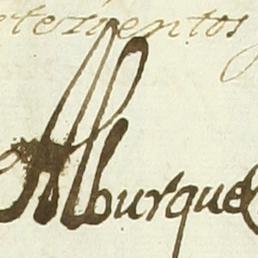 setezientos
Alburque